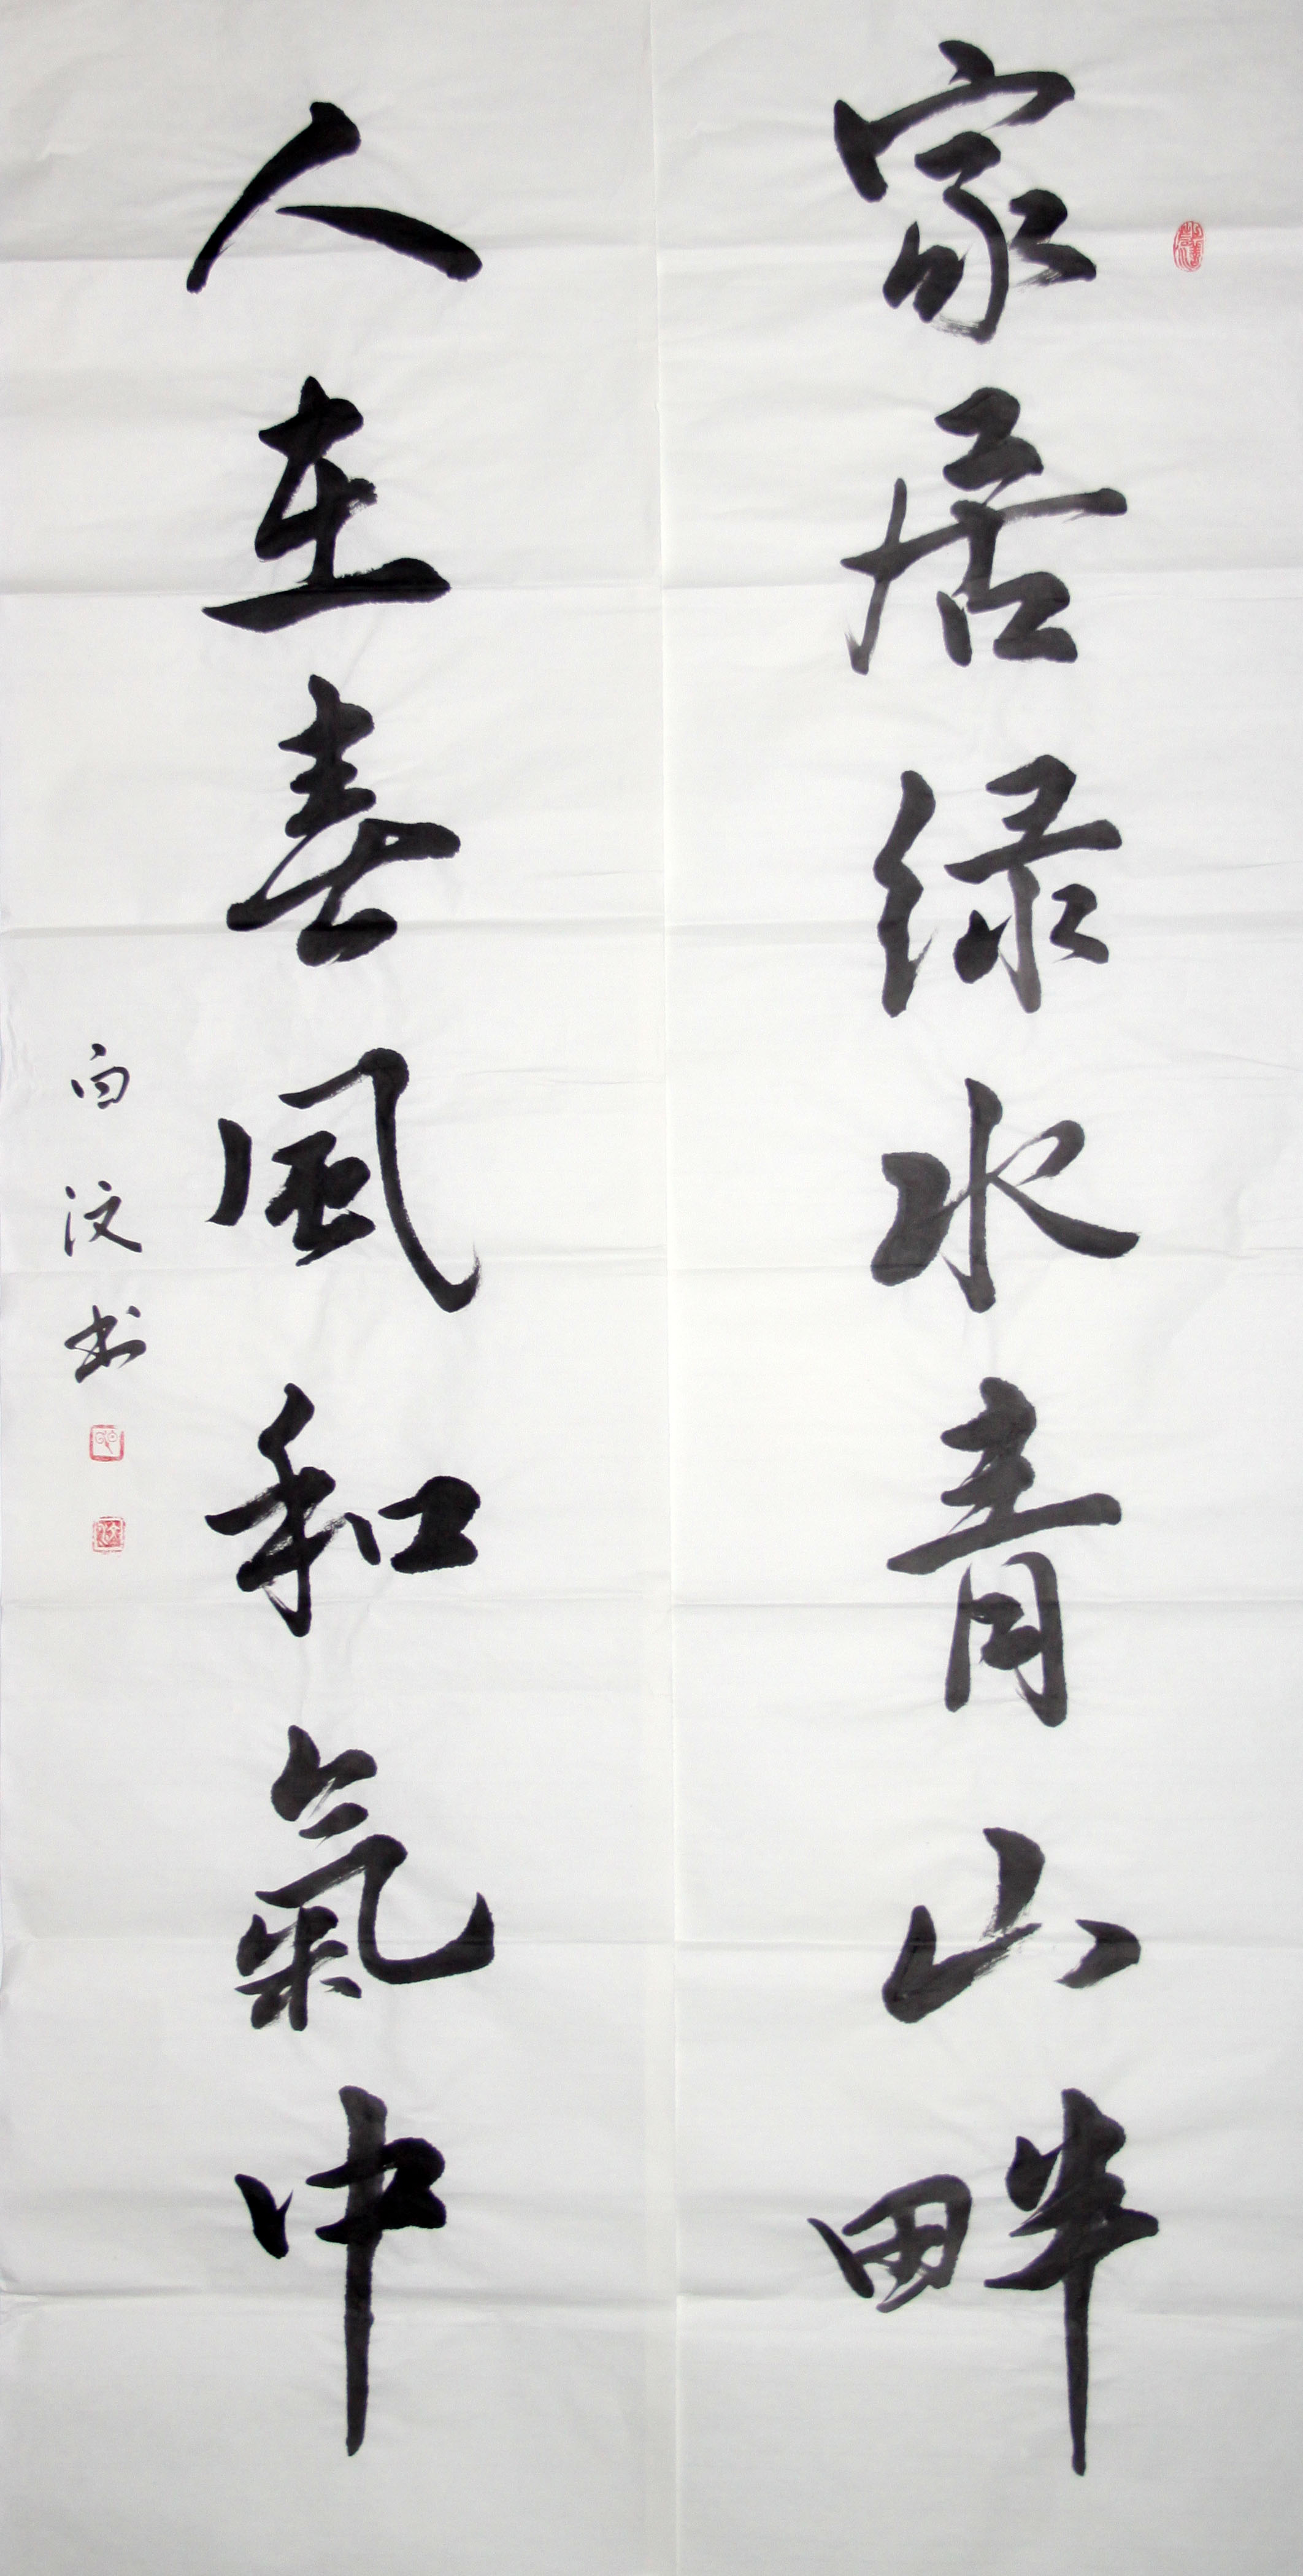 家居绿水青山畔
人在春风和氣中
白汶书